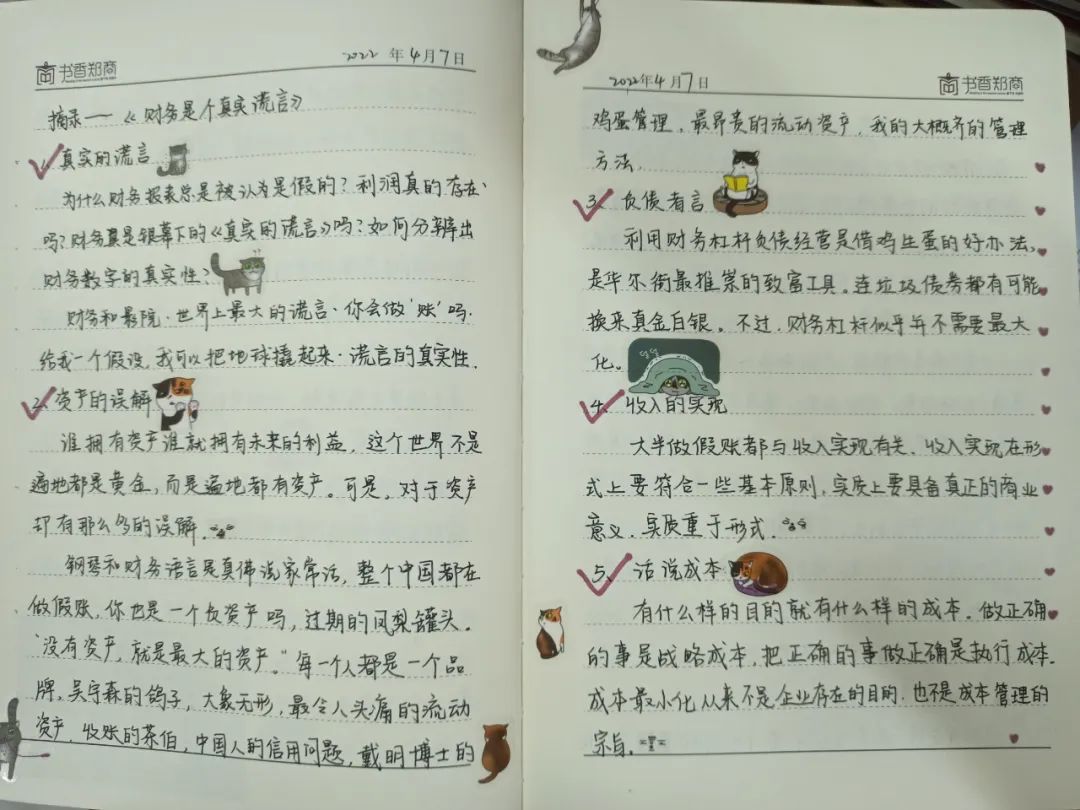 书香郑商
2022 年 4月7日
摘录——《财务是个真实谎言》
1、真实的谎言
为什么财务报表总是被认为是假的？利润真的存在
吗？财务真是银幕下的《真实的谎言》吗？如何分辨出
财务数字的真实性？
财务和影院．世界上最大的谎言．你会做‘账’吗．
给我一个假设，我可以把地球撬起来．谎言的真实性．
2、资产的误解
谁拥有资产谁就拥有未来的利益，这个世界不是
遍地都是黄金，而是遍地都有资产。可是，对于资产
却有那么多的误解．
钢琴和财务语言是真佛说家常话，整个中国都在
做假账，你也是一个负资产吗，过期的凤梨罐头。
“没有资产，就是最大的资产。”每一个人都是一个品
牌，吴宇森的鸽子，大象无形，最令人头痛的流动
资产，收账的茶伯，中国人的信用问题，戴明博士的
2022年4月7日
书香郑商
鸡蛋管理，最昂贵的流动资产，我的大概齐的管理
方法．
3、负债者言
利用财务杠杆负债经营是借鸡生蛋的好办法，
是华尔街最推崇的致富工具。连垃圾债券都有可能
换来真金白银。不过，财务杠杆似乎并不需要最大
化。
4、收入的实现
大半做假账都与收入实现有关．收入实现在形
式上要符合一些基本原则，实质上要具备真正的商业
意义．实质重于形式．
5、话说成本
有什么样的目的就有什么样的成本．做正确
的事是战略成本，把正确的事做正确是执行成本．
成本最小化从来不是企业存在的目的．也不是成本管理的
宗旨．